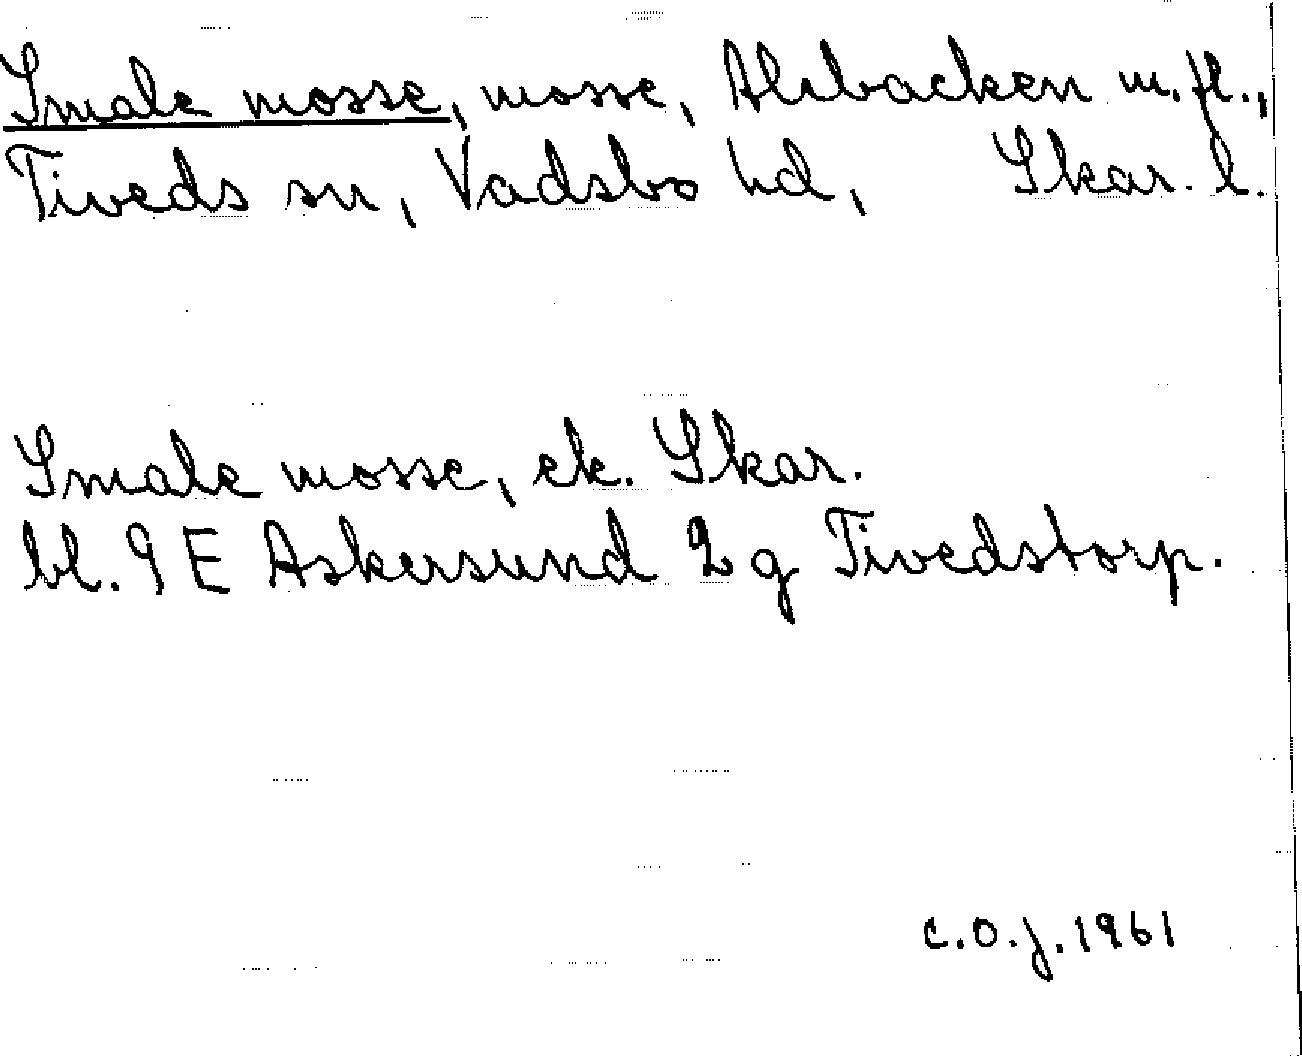 Smale mosse, mosse, Alsbacken m.fl.,
Tiveds sn, Vadsbo hd, Skar. l.
Smale mosse, ek. Skar.
bl. 9 E Askersund 2 g Tivedstorp.
C.O.J. 1961